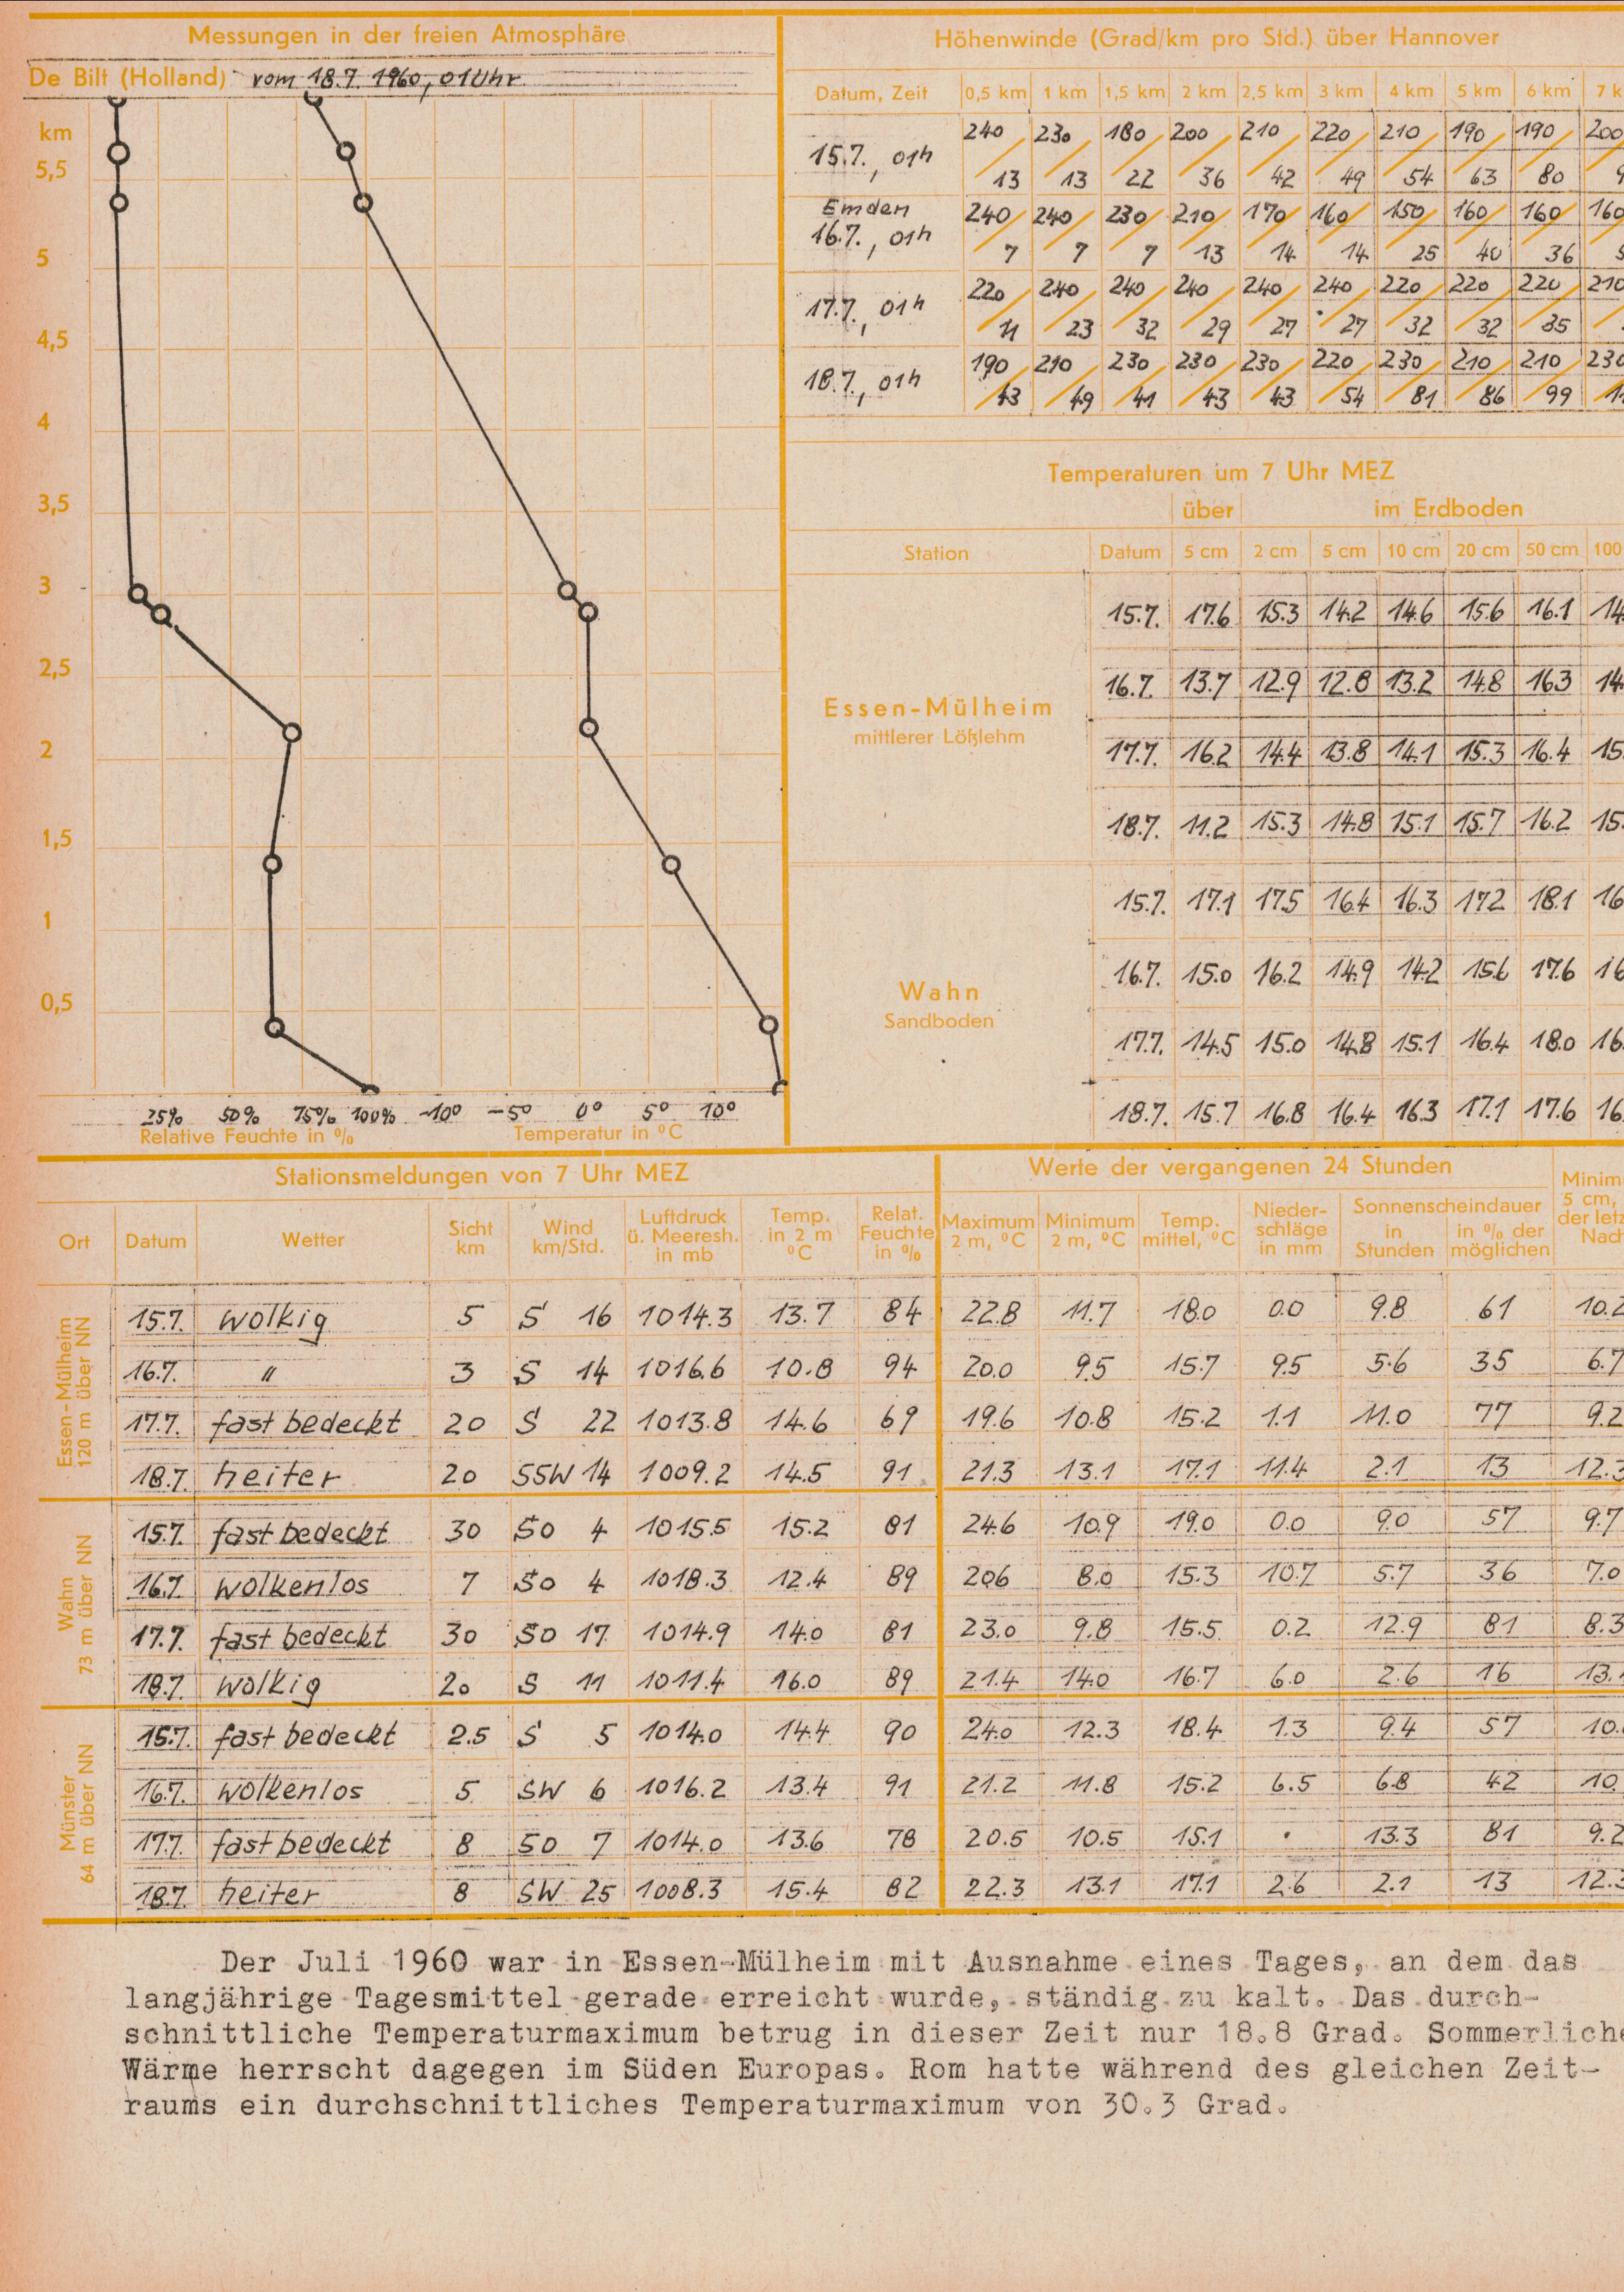 Messungen in der freien Atmosphäre
De Bilt (Holland) vom 18.7. 1960, 01 Uhr
km
5,5
5
4,5
4
3,5
3
2,5
2
1,5
1
0,5
25% 50% 75% 100% -10° -5° 0° 5° 10°
Relative Feuchte in % Temperatur in °C
Höhenwinde (Grad/km pro Std.) über Hannover
Datum, Zeit 0,5 km 1 km 1,5 km 2 km 2,5 km 3 km 4 km 5 km 6 km 7
240 230 180 200 210 220 210 190 190 200
15.7., 01h
13 13 22 36 42 49 54 63 80
Emden 240 240 230 210 170 160 150 160 160 160
16.7., 01h
7 7 7 13 14 14 25 40 36
220 240 240 240 240 240 220 220 220 210
17.7., 01h
11 23 32 29 27 27 32 32 35
190 210 230 230 230 220 230 210 210 230
18.7., 01h
43 49 41 43 43 54 81 86 99
Temperaturen um 7 Uhr MEZ
über im Erdboden
Station Datum 5 cm 2 cm 5 cm 10 cm 20 cm 50 cm 100
15.7. 17.6 15.3 14.2 14.6 15.6 16.1 14.
16.7. 13.7 12.9 12.8 13.2 14.8 16.3 14
Essen-Mülheim
mittlerer Lößlehm
17.7. 16.2 14.4 13.8 14.1 15.3 16.4 15.
18.7. 11.2 15.3 14.8 15.1 15.7 16.2 15.
15.7. 17.1 17.5 16.4 16.3 17.2 18.1 16
16.7. 15.0 16.2 14.9 14.2 15.6 17.6 16
Wahn
Sandboden
17.7. 14.5 15.0 14.8 15.1 16.4 18.0 16.
18.7. 15.7 16.8 16.4 16.3 17.1 17.6 16.
Stationsmeldungen von 7 Uhr MEZ Werte der vergangenen 24 Stunden
Ort Datum Wetter Sicht km Wind km/Std. Luftdruck ü. Meeresh. in mb Temp. in 2 m °C Relat. Feuchte in % Maximum 2 m, °C Minimum 2 m, °C Temp. mittel, °C Nieder-schläge in mm Sonnenscheindauer in Stunden in % der möglichen Minim 5 cm, der letz Nach
Essen-Mülheim
120 m über NN
15.7. wolkig 5 S 16 1014.3 13.7 84 22.8 11.7 18.0 0.0 9.8 61 10.2
16.7. " 3 S 14 1016.6 10.8 94 20.0 9.5 15.7 9.5 5.6 35 6.7
17.7. fast bedeckt 20 S 22 1013.8 14.6 69 19.6 10.8 15.2 1.1 11.0 77 9.2
18.7. heiter 20 SSW 14 1009.2 14.5 91 21.3 13.1 17.1 11.4 2.1 13 12.3
Wahn
73 m über NN
15.7. fast bedeckt 30 SO 4 1015.5 15.2 81 24.6 10.9 19.0 0.0 9.0 57 9.7
16.7. wolkenlos 7 SO 4 1018.3 12.4 89 20.6 8.0 15.3 10.7 5.7 36 7.0
17.7. fast bedeckt 30 SO 17 1014.9 14.0 81 23.0 9.8 15.5 0.2 12.9 81 8.3
18.7. wolkig 20 S 11 1011.4 16.0 89 21.4 14.0 16.7 6.0 2.6 16 13.
Münster
64 m über NN
15.7. fast bedeckt 2.5 S 5 1014.0 14.4 90 24.0 12.3 18.4 1.3 9.4 57 10.
16.7. wolkenlos 5 SW 6 1016.2 13.4 91 21.2 11.8 15.2 6.5 6.8 42 10.
17.7. fast bedeckt 8 SO 7 1014.0 13.6 78 20.5 10.5 15.1 • 13.3 81 9.2
18.7. heiter 8 SW 25 1008.3 15.4 82 22.3 13.1 17.1 2.6 2.1 13 12.3
Der Juli 1960 war in Essen-Mülheim mit Ausnahme eines Tages, an dem das
langjährige Tagesmittel gerade erreicht wurde, ständig zu kalt. Das durch-
schnittliche Temperaturmaximum betrug in dieser Zeit nur 18.8 Grad. Sommerliche
Wärme herrscht dagegen im Süden Europas. Rom hatte während des gleichen Zeit-
raums ein durchschnittliches Temperaturmaximum von 30.3 Grad.